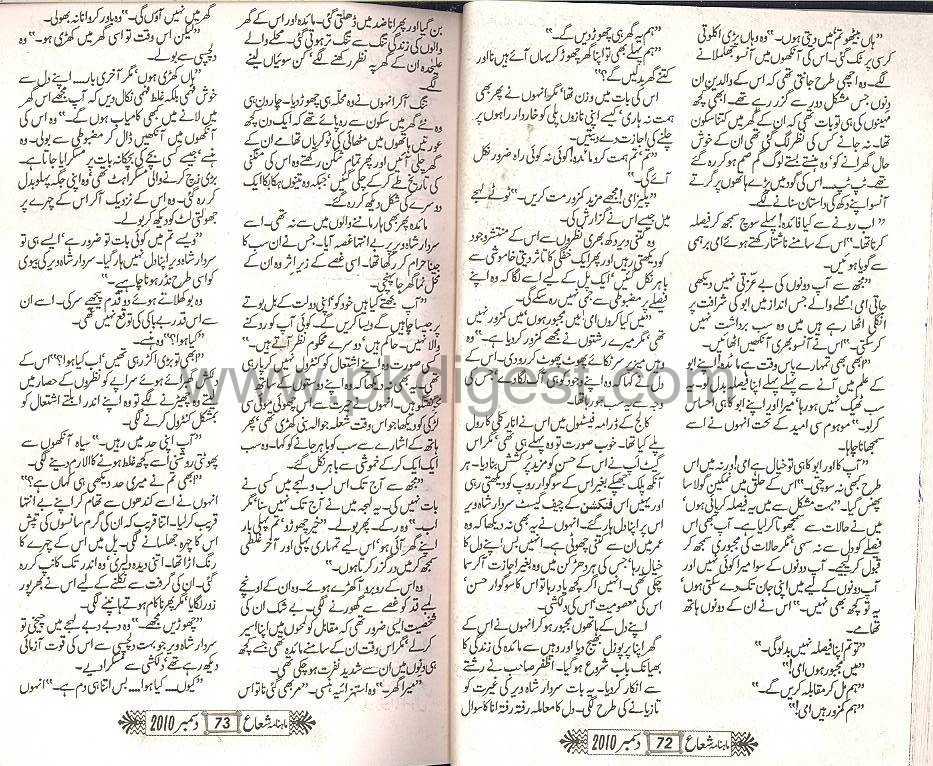 "ہاں بیٹھو تم میں دیتی ہوں۔" وہ وہاں پڑی اکلوتی
کرسی پر ٹک گئی۔ اس کی آنکھوں میں آنسو جھلملانے
لگے۔ وہ اچھی طرح جانتی تھی کہ اس کے والدین ان
دنوں جس مشکل دور سے گزر رہے تھے۔ ابھی کچھ
مہینوں کی ہی تو بات تھی کہ ان کے گھر میں کتنا سکون
تھا۔ نہ جانے کس کی نظر لگ گئی تھی ان کے خوش
حال گھرانے کو، وہ ہنستے بستے لوگ گم صم ہو کر رہ گئے
تھے۔ ٹپ ٹپ۔ اس کی گود میں پڑے ہاتھوں پر گرتے
آنسو اپنے دکھ کی داستان سنانے لگے۔
"اب رونے سے کیا فائدہ! پہلے سوچ سمجھ کر فیصلہ
کرنا تھا۔" اس کے سامنے ناشتا رکھتے ہوئے امی برہمی
سے گویا ہوئیں۔
"مجھ سے آپ دونوں کی بے عزتی نہیں دیکھی
جاتی امی! محلے والے جس انداز میں ابو کی شرافت پر
انگلی اٹھا رہے ہیں میں وہ سب برداشت نہیں
کر سکتی۔" اس نے آنسو بھری آنکھیں اٹھائیں۔
"ابھی بھی تمہارے پاس وقت ہے مائدہ! اپنے ابو
کے علم میں آنے سے پہلے پہلے اپنا فیصلہ بدل دو، یہ
سب ٹھیک نہیں ہو رہا، میرا اور اپنے ابو کا ہی احساس
کر لو۔" موہوم سی امید کے تحت انہوں نے اسے
سمجھانا چاہا۔
"آپ کا اور ابو کا ہی تو خیال ہے امی! ورنہ میں اس
طرح بھی نہ سوچتی۔" اس کے حلق میں نمکین گولا سا
پھنس گیا۔ "بہت مشکل سے میں یہ فیصلہ کر پائی ہوں،
میں نے حالات سے سمجھوتا کر لیا ہے۔ آپ بھی اس
فیصلے کو دل سے نہ سہی، مگر حالات کی مجبوری سمجھ کر
قبول کر لیجیے۔ آپ دونوں کے سوا میرا کوئی نہیں اور
آپ دونوں کے لیے میں اپنی جان تک دے سکتی ہوں،
یہ تو کچھ بھی نہیں۔" اس نے ان کے دونوں ہاتھ
تھامے۔
"تو تم اپنا فیصلہ نہیں بدلو گی۔"
"میں مجبور ہوں امی!"
"ہم مل کر مقابلہ کریں گے۔"
"ہم کمزور ہیں امی!"
"ہم یہ گھر ہی چھوڑ دیں گے۔"
"ہم پہلے بھی تو اپنا گھر چھوڑ کر یہاں آئے ہیں نا اور
کتنے گھر بدلیں گے؟"
اس کی بات میں وزن تھا، مگر انہوں نے پھر بھی
ہمت نہ ہاری، کیسے اپنی نازوں پلی کو خاردار راہوں پر
چلنے کی اجازت دے دیتیں۔
"ہم، تم ہمت کرو مائدہ! کوئی نہ کوئی راہ ضرور نکل
آئے گی۔"
"پلیز امی! مجھے مزید کمزور مت کریں۔" ٹوٹے لہجے
میں جیسے اس نے گزارش کی۔
وہ کتنی دیر دکھ بھری نظروں سے اس کے منتشر وجود
کو دیکھتی رہیں اور پھر ایک خفگی کا تاثر دیتی خاموشی سے
باہر نکل گئیں، ایک پل کے لیے اسے لگا کہ وہ اپنے
فیصلے پر مضبوطی سے جمی نہیں رہ سکے گی۔
"میں کیا کروں امی! میں مجبور ہوں، میں کمزور نہیں
تھی، مگر میرے رشتوں نے مجھے کمزور کر دیا۔" وہ
وہیں میز پر سر ٹکائے پھوٹ پھوٹ کر رو دی۔ اس کے
دل نے کہا کہ وہ اپنے وجود کو ہی آگ لگا دے جس کی
وجہ سے یہ سب ہو رہا تھا۔
کالج کے ڈرامہ فیسٹول میں اس نے انار کلی کا رول
پلے کیا تھا۔ خوب صورت تو وہ پہلے ہی تھی، مگر اس
گیٹ اپ نے اس کے حسن کو مزید پر کشش بنا دیا۔ ہر
آنکھ پلک جھپکے بغیر اس کے سوگوار روپ کو دیکھتی رہی
اور یہیں اس فنکشن کے چیف گیسٹ سردار شاہ ویر
اس پر اپنا دل ہار گئے۔ انہوں نے یہ بھی نہ دیکھا کہ وہ
عمر میں ان سے کتنی چھوٹی ہے۔ انہیں بس اپنے دل کا
خیال رہا، جس کی ہر دھڑکن میں وہ بغیر اجازت آ کر سما
چکی تھی۔ انہیں اگر کچھ یاد رہا تو اس کا سوگوار حسن،
اس کی معصومیت اس کی دلکشی۔
اپنے دل کے ہاتھوں مجبور ہو کر انہوں نے اس کے
گھر اپنا پرپوزل بھیج دیا اور وہیں سے مائدہ کی زندگی کا
بھیانک باب شروع ہو گیا۔ اظفر صاحب نے رشتے
سے انکار کر دیا۔ یہ بات سردار شاہ ویر کی غیرت کو
تازیانے کی طرح لگی۔ دل کا معاملہ رفتہ رفتہ انا کا سوال
ماہنامہ شعاع 72 دسمبر 2010
بن گیا اور پھر انا ضد میں ڈھلتی گئی۔ مائدہ اور اس کے گھر
والوں کی زندگی تنگ سے تنگ تر ہوتی گئی۔ محلے والے
علیحدہ ان کے گھر پہ نظر رکھنے لگے، کن سوئیاں لینے
لگے۔
تنگ آ کر انہوں نے وہ محلہ ہی چھوڑ دیا۔ چار دن ہی
وہ نئے گھر میں سکون سے رہ پائے تھے کہ ایک دن کچھ
عورتیں ہاتھوں میں مٹھائی کی ٹوکریاں تھامے ان کے
گھر چلی آئیں اور پھر تمام ممکن رکھتے وہ اس کی منگنی
کی تاریخ طے کر کے چلی گئیں، جبکہ وہ تینوں ہکا بکا ایک
دوسرے کی شکل دیکھ کر رہ گئے۔
مائدہ پھر بھی ہار ماننے والوں میں سے نہ تھی۔ اسے
سردار شاہ ویر پر بے انتہا غصہ آیا۔ جس نے ان سب کا
جینا حرام کر رکھا تھا۔ اسی غصے کے زیر اثر وہ ان کے
محل نما گھر جا پہنچی۔
"آپ سمجھتے کیا ہیں خود کو، اپنی دولت کے بل بوتے
پر جیسا چاہیں گے ویسا کریں گے۔ کوئی آپ کو روکنے
والا نہیں۔ حاکم ہیں، دوسرے محکوم نظر آتے ہیں۔"
کسی صورت بھی وہ اپنے اشتعال کو کنٹرول نہیں کر پا رہی
تھی۔ یہ بھی نہ دیکھا کہ وہ اپنے ملازموں کے ہمراہ
بیٹھے ہیں۔ انہوں نے حیرت سے اس چھوٹی موئی سی
لڑکی کو دیکھا جو اس وقت شعلہ جوالہ بنی کھڑی تھی، پھر
ہاتھ کے اشارے سے سب کو باہر جانے کو کہا۔ وہ سب
ایک ایک کر کے خموشی سے باہر نکل گئے۔
"مجھ سے آج تک اس لب و لہجے میں کسی نے
بات نہیں کی۔ یہ لہجہ میں نے آج تک نہیں سنا، مگر
اب۔" وہ رکے۔ پھر بولے۔ "خیر چھوڑو، تم پہلی بار
اپنے گھر آئی ہو، اس لیے تمہاری پہلی اور آخر غلطی
سمجھ کر میں درگزر کرتا ہوں۔"
وہ اس کے روبرو آ کھڑے ہوئے۔ وہ ان کے اونچے
لمبے قد کو غصے سے گھورنے لگی۔ بے شک ان کی
شخصیت ایسی ضرور تھی کہ مقابل کو لمحوں میں اپنا اسیر
کر لے، مگر اس وقت ان کے سامنے مائدہ تھی جسے کچھ
ہی دنوں میں ان سے شدید نفرت ہو چکی تھی۔
"میرا گھر۔" وہ استہزائیہ ہنسی۔ "مر بھی گئی نا تو اس
گھر میں نہیں آؤں گی۔" وہ باور کروانا نہ بھولی۔
"لیکن اس وقت تو اسی گھر میں کھڑی ہو۔" وہ
دلچسپی سے بولے۔
"ہاں کھڑی ہوں، مگر آخری بار۔۔۔۔ اپنے دل سے
خوش فہمی بلکہ غلط فہمی نکال دیں کہ آپ مجھے اس گھر
میں لانے میں بھی کامیاب ہوں گے۔" وہ اس کی
آنکھوں میں آنکھیں ڈال کر مضبوطی سے بولی۔ وہ
ہنسے، جیسے کسی بچے کی بچکانہ بات پر مسکرایا جاتا ہے۔
بڑی زچ کرنے والی مسکراہٹ تھی، وہ اپنی جگہ پہلو بدل
کر رہ گئی۔ وہ اس کے نزدیک آ کر اس کے چہرے پر
جھولتی لٹ کو دیکھ کر بولے۔
"ویسے تم میں کوئی بات تو ضرور ہے، ایسے ہی تو
سردار شاہ ویر اپنا دل نہیں ہار گیا۔ سردار شاہ ویر کی بیوی
کو اسی طرح نڈر ہونا چاہیے۔"
وہ بوکھلاتے ہوئے دو قدم پیچھے سرکی۔ اسے ان
سے اس قدر بے باکی کی توقع نہیں تھی۔
"کیا ہوا؟" وہ ہنسے۔
"ابھی تو بڑی اکڑ رہی تھیں، اب کیا ہوا؟" اس کے
دلکش گھبرائے ہوئے سراپے کو نظروں کے حصار میں
لیتے وہ چھیڑنے لگے تو وہ اپنے اندر ابلتے اشتعال کو
بمشکل کنٹرول کرنے لگی۔
"آپ اپنی حد میں رہیں۔" سیاہ آنکھوں سے
پھوٹتی روشنی اسے کچھ غلط ہونے کا الارم دینے لگی۔
"ابھی تم نے میری حد دیکھی ہی کہاں ہے؟"
انہوں نے اسے کندھوں سے تھام کر اپنے بے انتہا
قریب کر لیا۔ اتنا قریب کہ ان کی گرم سانسوں کی تپش
اس کا چہرہ جھلسانے لگی۔ پل میں اس کے چہرے کا
رنگ اڑا تھا۔ اتنی دیدہ دلیری، وہ اندر تک کانپ کر رہ
گئی۔ ان کی گرفت سے نکلنے کے لیے اس نے بھرپور
زور لگایا، مگر پھر ناکام ہوتے ہانپنے لگی۔
"چھوڑیں مجھے۔" وہ دبے دبے لہجے میں چیخی تو
سردار شاہ ویر جو بہت دلچسپی سے اس کی قوت آزمائی
دیکھ رہے تھے، دلکشی سے مسکرا دیے۔
"کیوں۔۔۔ کیا ہوا۔۔۔۔ بس اتنا ہی دم ہے۔" انہوں
ماہنامہ شعاع 73 دسمبر 2010
www.pkdigest.com